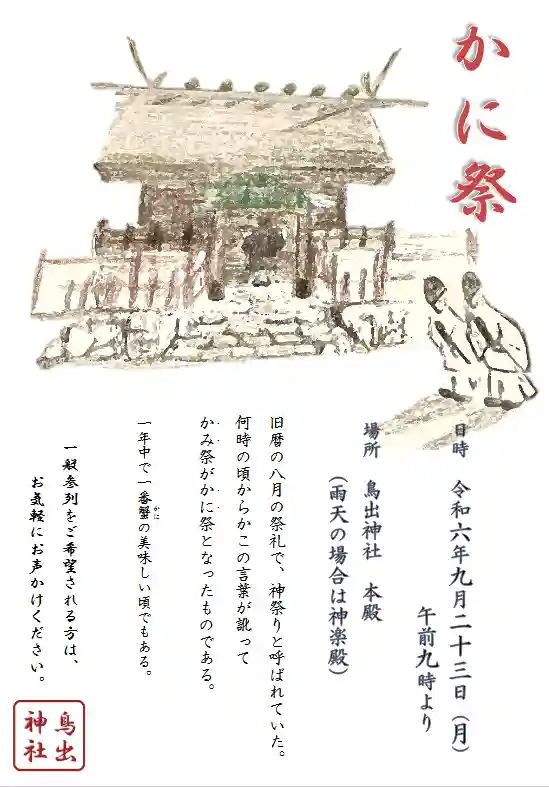 かに祭
日時　令和六年九月二十三日（月）
午前九時より
場所　鳥出神社　本殿
（雨天の場合は神楽殿）
旧暦の八月の祭礼で、神祭りと呼ばれていた。
何時の頃からかこの言葉が訛って
かみ祭がかに祭となったものである。
一年中で一番蟹の美味しい頃でもある。
かに
一般参列をご希望される方は、
お気軽にお声かけください。
鳥出
神社